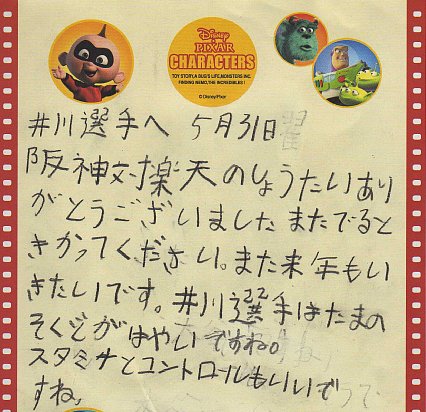 Disney
PIXAR
CHARACTERS
TOY STORY, A BUG'S LIFE, MONSTERS INC.
FINDING NEMO, THE INCREDIBLES!
© Disney/Pixar
井川選手へ 5月31日
阪神対楽天のしょうたいあり
がとうございましたまたでると
きかってください。また来年もい
きたいです。井川選手はたまの
そくどがはやいですね。
スタミナとコントロールもいいで
すね。